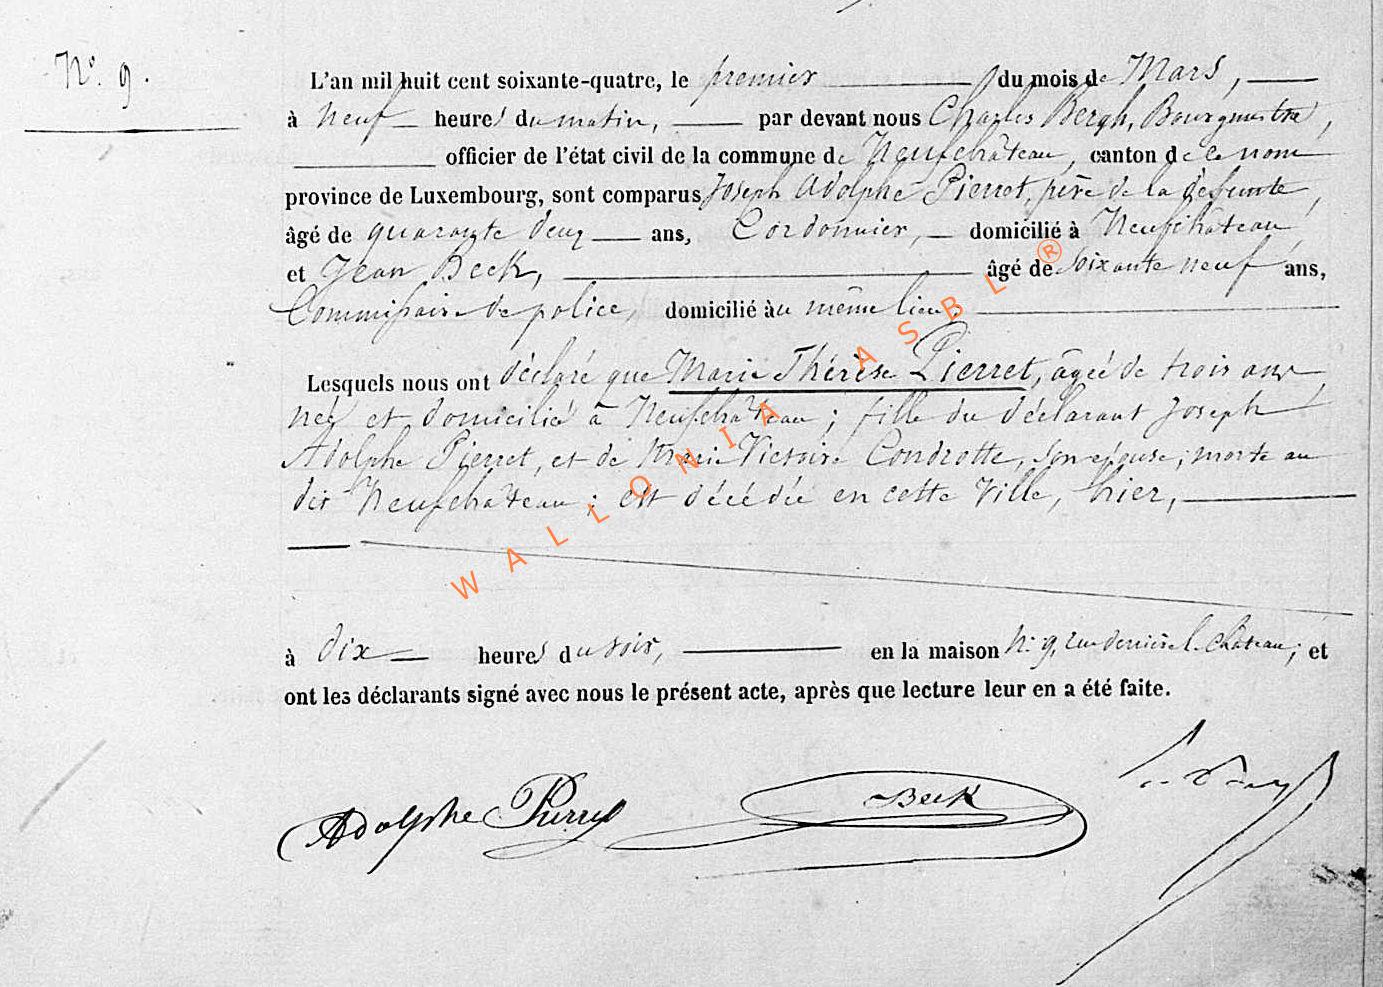 N° 9.
L'an mil huit cent soixante-quatre, le premier du mois de Mars,
à neuf heures du matin, par devant nous Charles Bergh, Bourgmestre,
officier de l'état civil de la commune de Neufchâteau, canton de ce nom
province de Luxembourg, sont comparus Joseph Adolphe Pierret, père de la défunte,
âgé de quarante deux ans, Cordonnier, domicilié à Neufchâteau,
et Jean Beck, âgé de soixante neuf ans,
Commissaire de police, domicilié au même lieu,
Lesquels nous ont déclaré que Marie Thérèse Pierret, âgée de trois ans,
née et domiciliée à Neufchâteau; fille du déclarant Joseph
Adolphe Pierret, et de Marie Victoire Condrotte, son épouse, morte au
dit Neufchâteau; est décédée en cette ville, hier,
à dix heures du soir, en la maison N° 9, rue derrière le château; et
ont les déclarants signé avec nous le présent acte, après que lecture leur en a été faite.
Adolphe Pierret Beck
WALLONIA ASBL ®